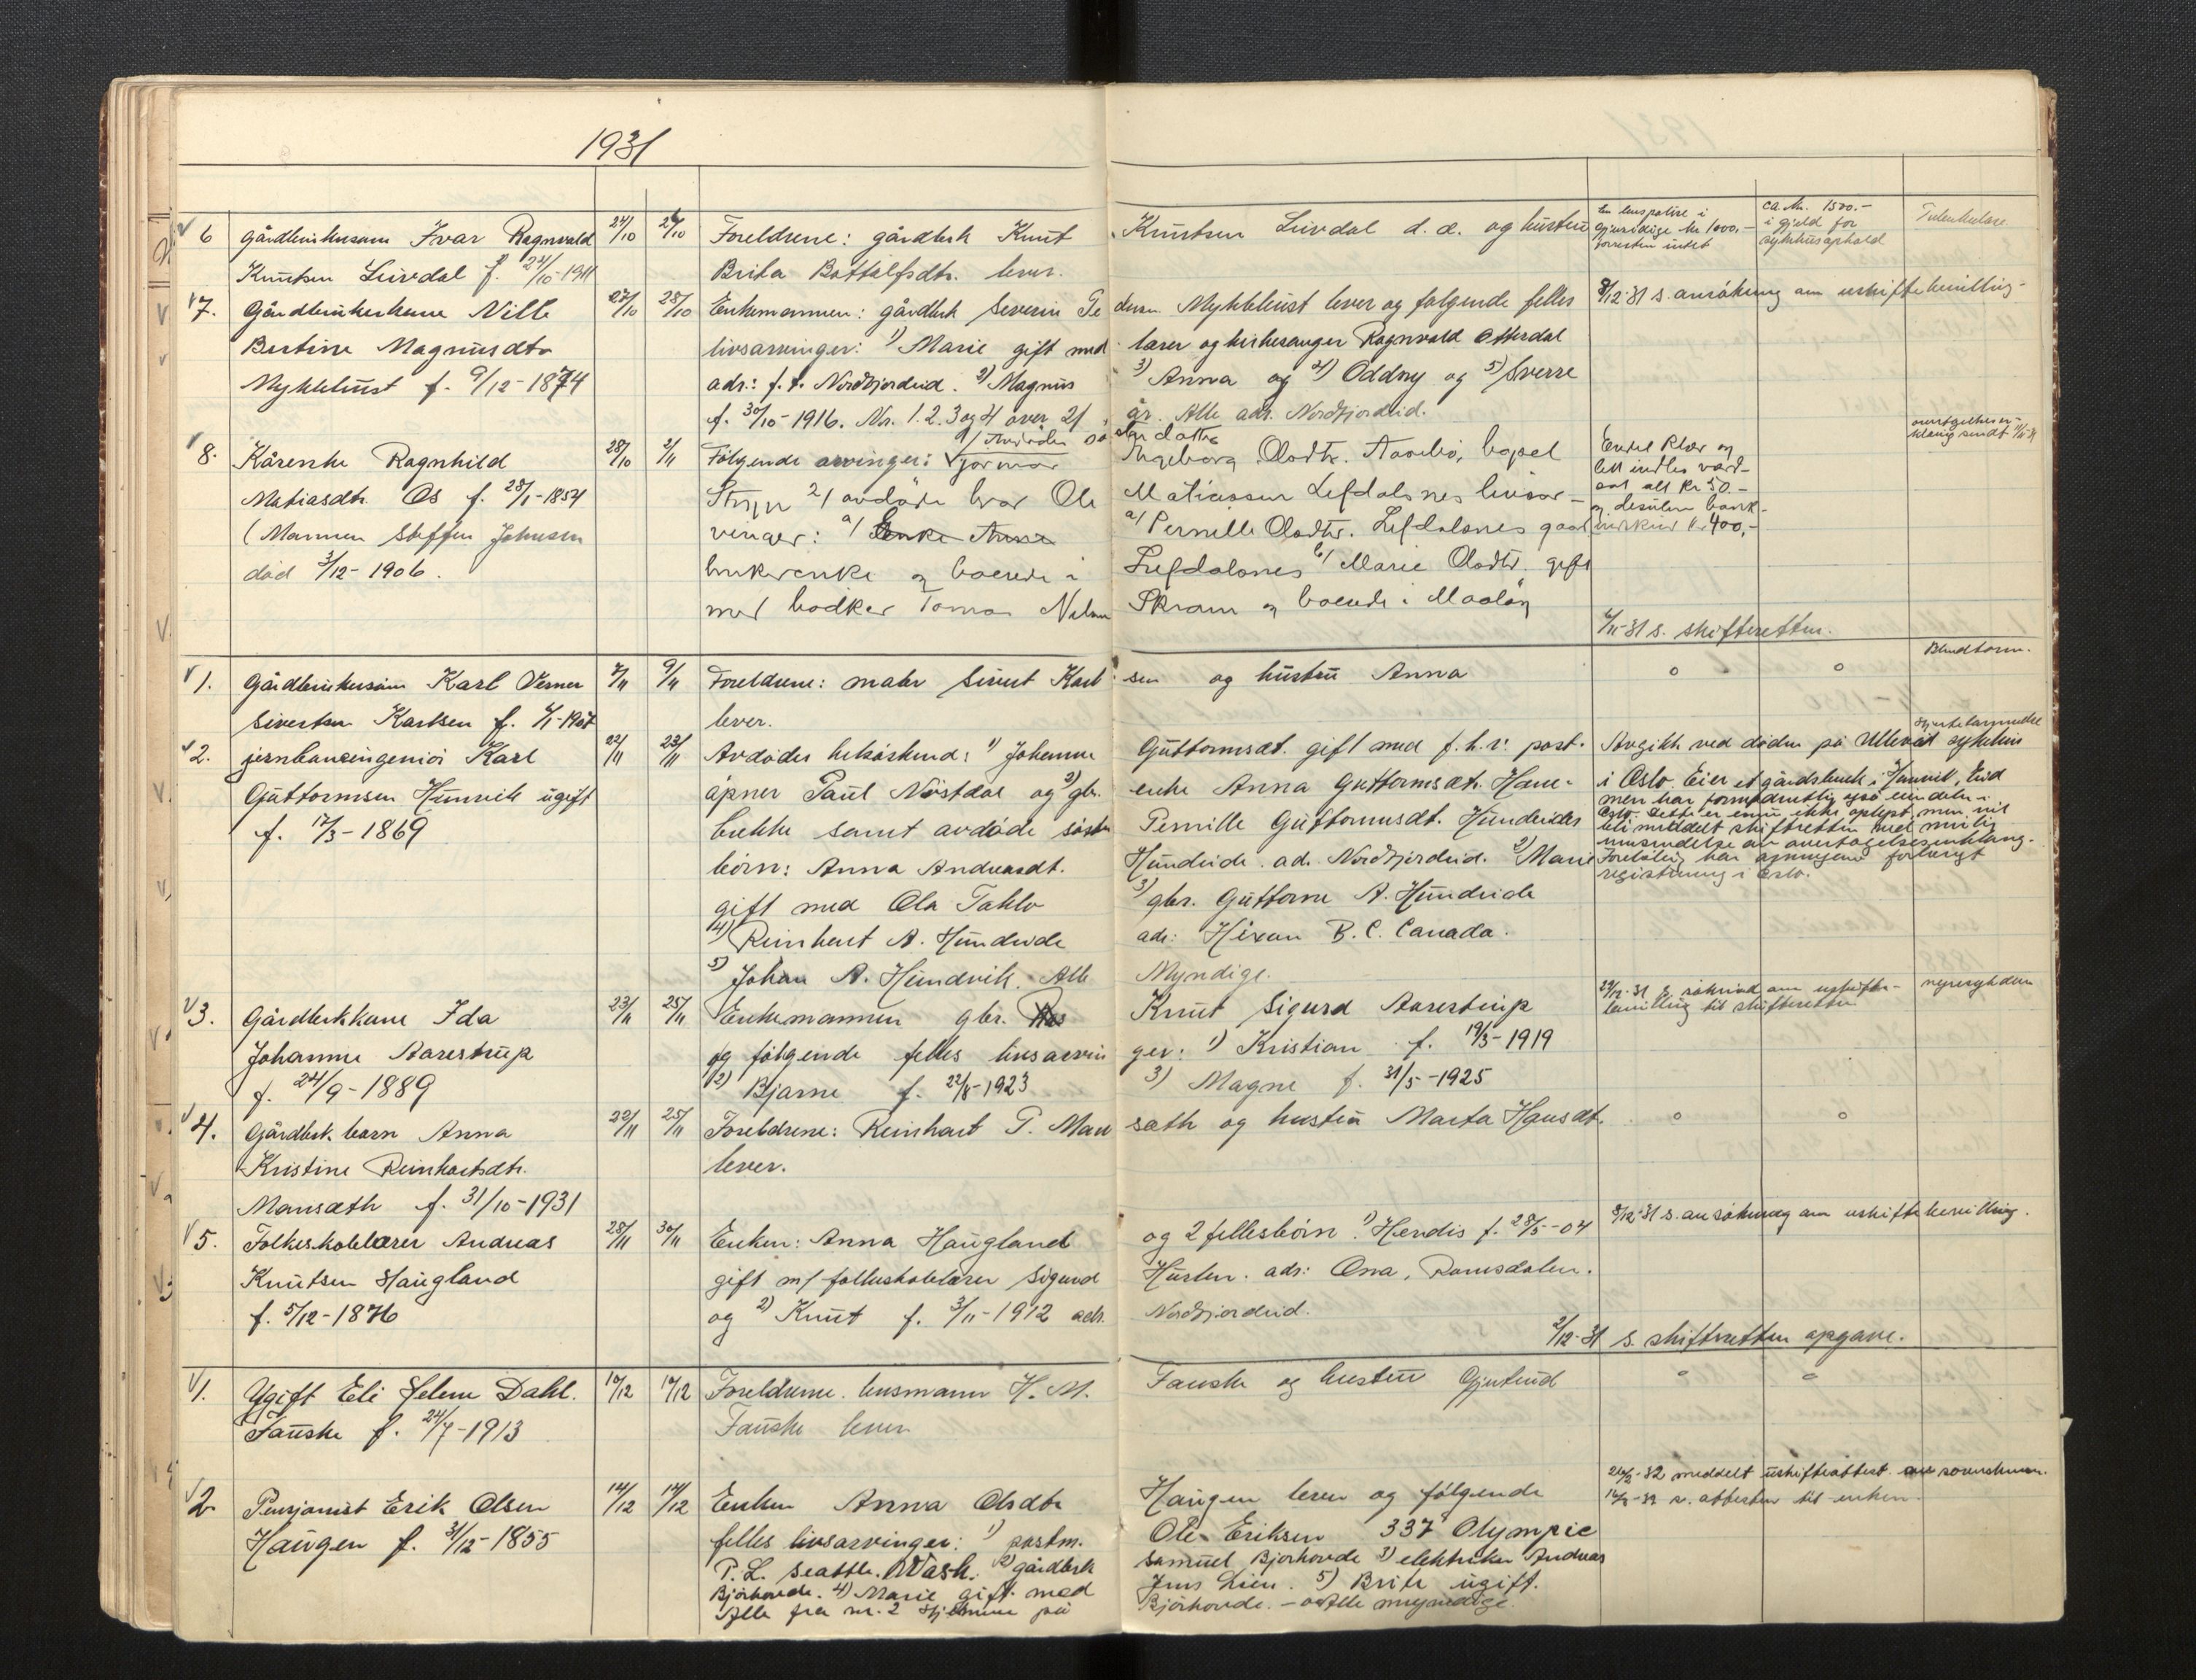 1931
6 gårdbrukersønn Ivar Ragnvald 24/10 26/10 Foreldrene: gårdbruk Knut Knutsen Leivdal d.d. og hustru
Knutsen Leivdal f. 24/10-1911 Brita Bottolfsdtr. lever.
En livspolise i
gjensidige kr 1000.-
forresten intet
ca. kr. 1500.-
i gjeld for
sykehusophold
Tuberkulose
7. Gårdbrukerkone Nille 27/10 28/10 Enkemannen: gårdbruk Severin Pe dersen Myklebust lever og følgende felles 8/12-31 s. ansøkning om uskiftebevilling-
Bertine Magnusdtr livsarvinger: 1) Marie gift med lærer og kirkesanger Ragnvald Otterdal
Myklebust f. 9/12-1874 adr.: f. t. Nordfjordeid. 2) Magnus 3) Anna og 4) Oddny og 5) Sverre
f. 30/10-1916. Nr. 1. 2. 3 og 4 over 21 år. Alle adr. Nordfjordeid.
8. Kårenke Ragnhild 28/10 2/11 Følgende arvinger: 1/ Avdødes datter Ingeborg Olsdtr. bopel
Matiasdtr. Os f. 28/1-1854 Stryn 2/ avdøde bror Ole Matiassen Lefdalsnes livsar-
(Mannen Steffen Johnsen vinger: a/ Enke Anna a/ Pernille Olsdtr. Lefdalsnes gaard
død 3/12-1906. brukerenke og boende i Lefdalsnes b/ Marie Olsdtr. gift
med bødker Tomas Nilsen Skram og boende i Maaløy
Endel klær og
litt indbo værd-
sat alt kr 50.-
og desuten bank-
innskud kr 400,-
6/11-31 s. skifteretten.
1. Gårdbrukersønn Karl Verner 7/11 9/11 Foreldrene: maler Sivert Karl sen og hustru Anna o o Blindtarm.
Sivertsen Karlsen f. 4/1-1907 lever.
2. jernbaneingeniør Karl 22/11 23/11 Avdødes helsøskend: 1) Johanne Guttormsdt. gift med f.h.v. post-
Guttormsen Hundvik ugift åpner Paul Nøstdal og 2) gbr. enke Anna Guttormsdt. Hane-
f. 17/3-1869 bekke samt avdøde søster Pernille Guttormsdt. Hundeides
børn: Anna Andreasdt. Hundeide ad. Nordfjordeid. 2) Marie
gift med Ola Taklo 3) gbr. Guttorm A. Hundeide
4) Reinhart A. Hundeide adr: Hixon B.C. Canada.
5) Johan A. Hundvik. Alle Myndige.
Avgikk ved døden på Ullevål sykehus
i Oslo. Eier et gårdsbruk i Hunvik, Eid
men har formodentlig også eiendeler i
Oslo. Dette er ennu ikke oplyst, men vil
bli meddelt skifteretten med mulig
innsendelse av overtagelseserklæring.
Foreløbig har arvingene forlangt
registrering i Oslo.
3. Gårdbrkkone Ida 23/11 25/11 Enkemannen gbr. Knut Sigurd Aarestrup
Johanne Aarestrup og følgende felles livsarvin ger: 1) Kristian f. 19/3-1919
f. 24/9-1889 2) Bjarne f. 22/8-1923 3) Magne f. 31/5-1925
nyresykdom
4. Gårdbrk. barn Anna 22/11 25/11 Foreldrene: Reinhart P. Man sæth og hustru Marta Hansdt. o o
Kristine Reinhartsdtr. lever.
Mansæth f. 31/10-1931
5. Folkeskolelærer Andreas 28/11 30/11 Enken: Anna Haugland og 2 fellesbørn. 1) Herdis f. 28/5-04 8/12-31 s. ansøkning om uskiftebevilling.
Knutsen Haugland gift m/ folkeskolelærer Sigurd Husten. adr: Ona, Romsdalen.
f. 5/12-1876 og 2) Knut f. 3/11-1912 adr. Nordfjordeid.
2/12-31 s. skifteretten opgave.
1. Ugift Eli Helene Dahl. 10/12 14/12 Foreldrene. husmann H. M. Fauske og hustru Gjertrud
Fauske f. 24/7-1913 Fauske lever
2 Pensjonist Erik Olsen 14/12 14/12 Enken Anna Olsdtr Haugen lever og følgende
Haugen f. 31/12-1855 felles livsarvinger: 1) postm. Ole Eriksen 337 Olympic
P.L. Seattle. Wash. 2) gårdbrk Samuel Bjørhovde 3) elektriker Andreas
Bjørhovde. 4) Marie gift med Jens Lien. 5) Brite ugift.
Alle fra nr. 2 hjemme på Bjørhovde. - Alle myndige.